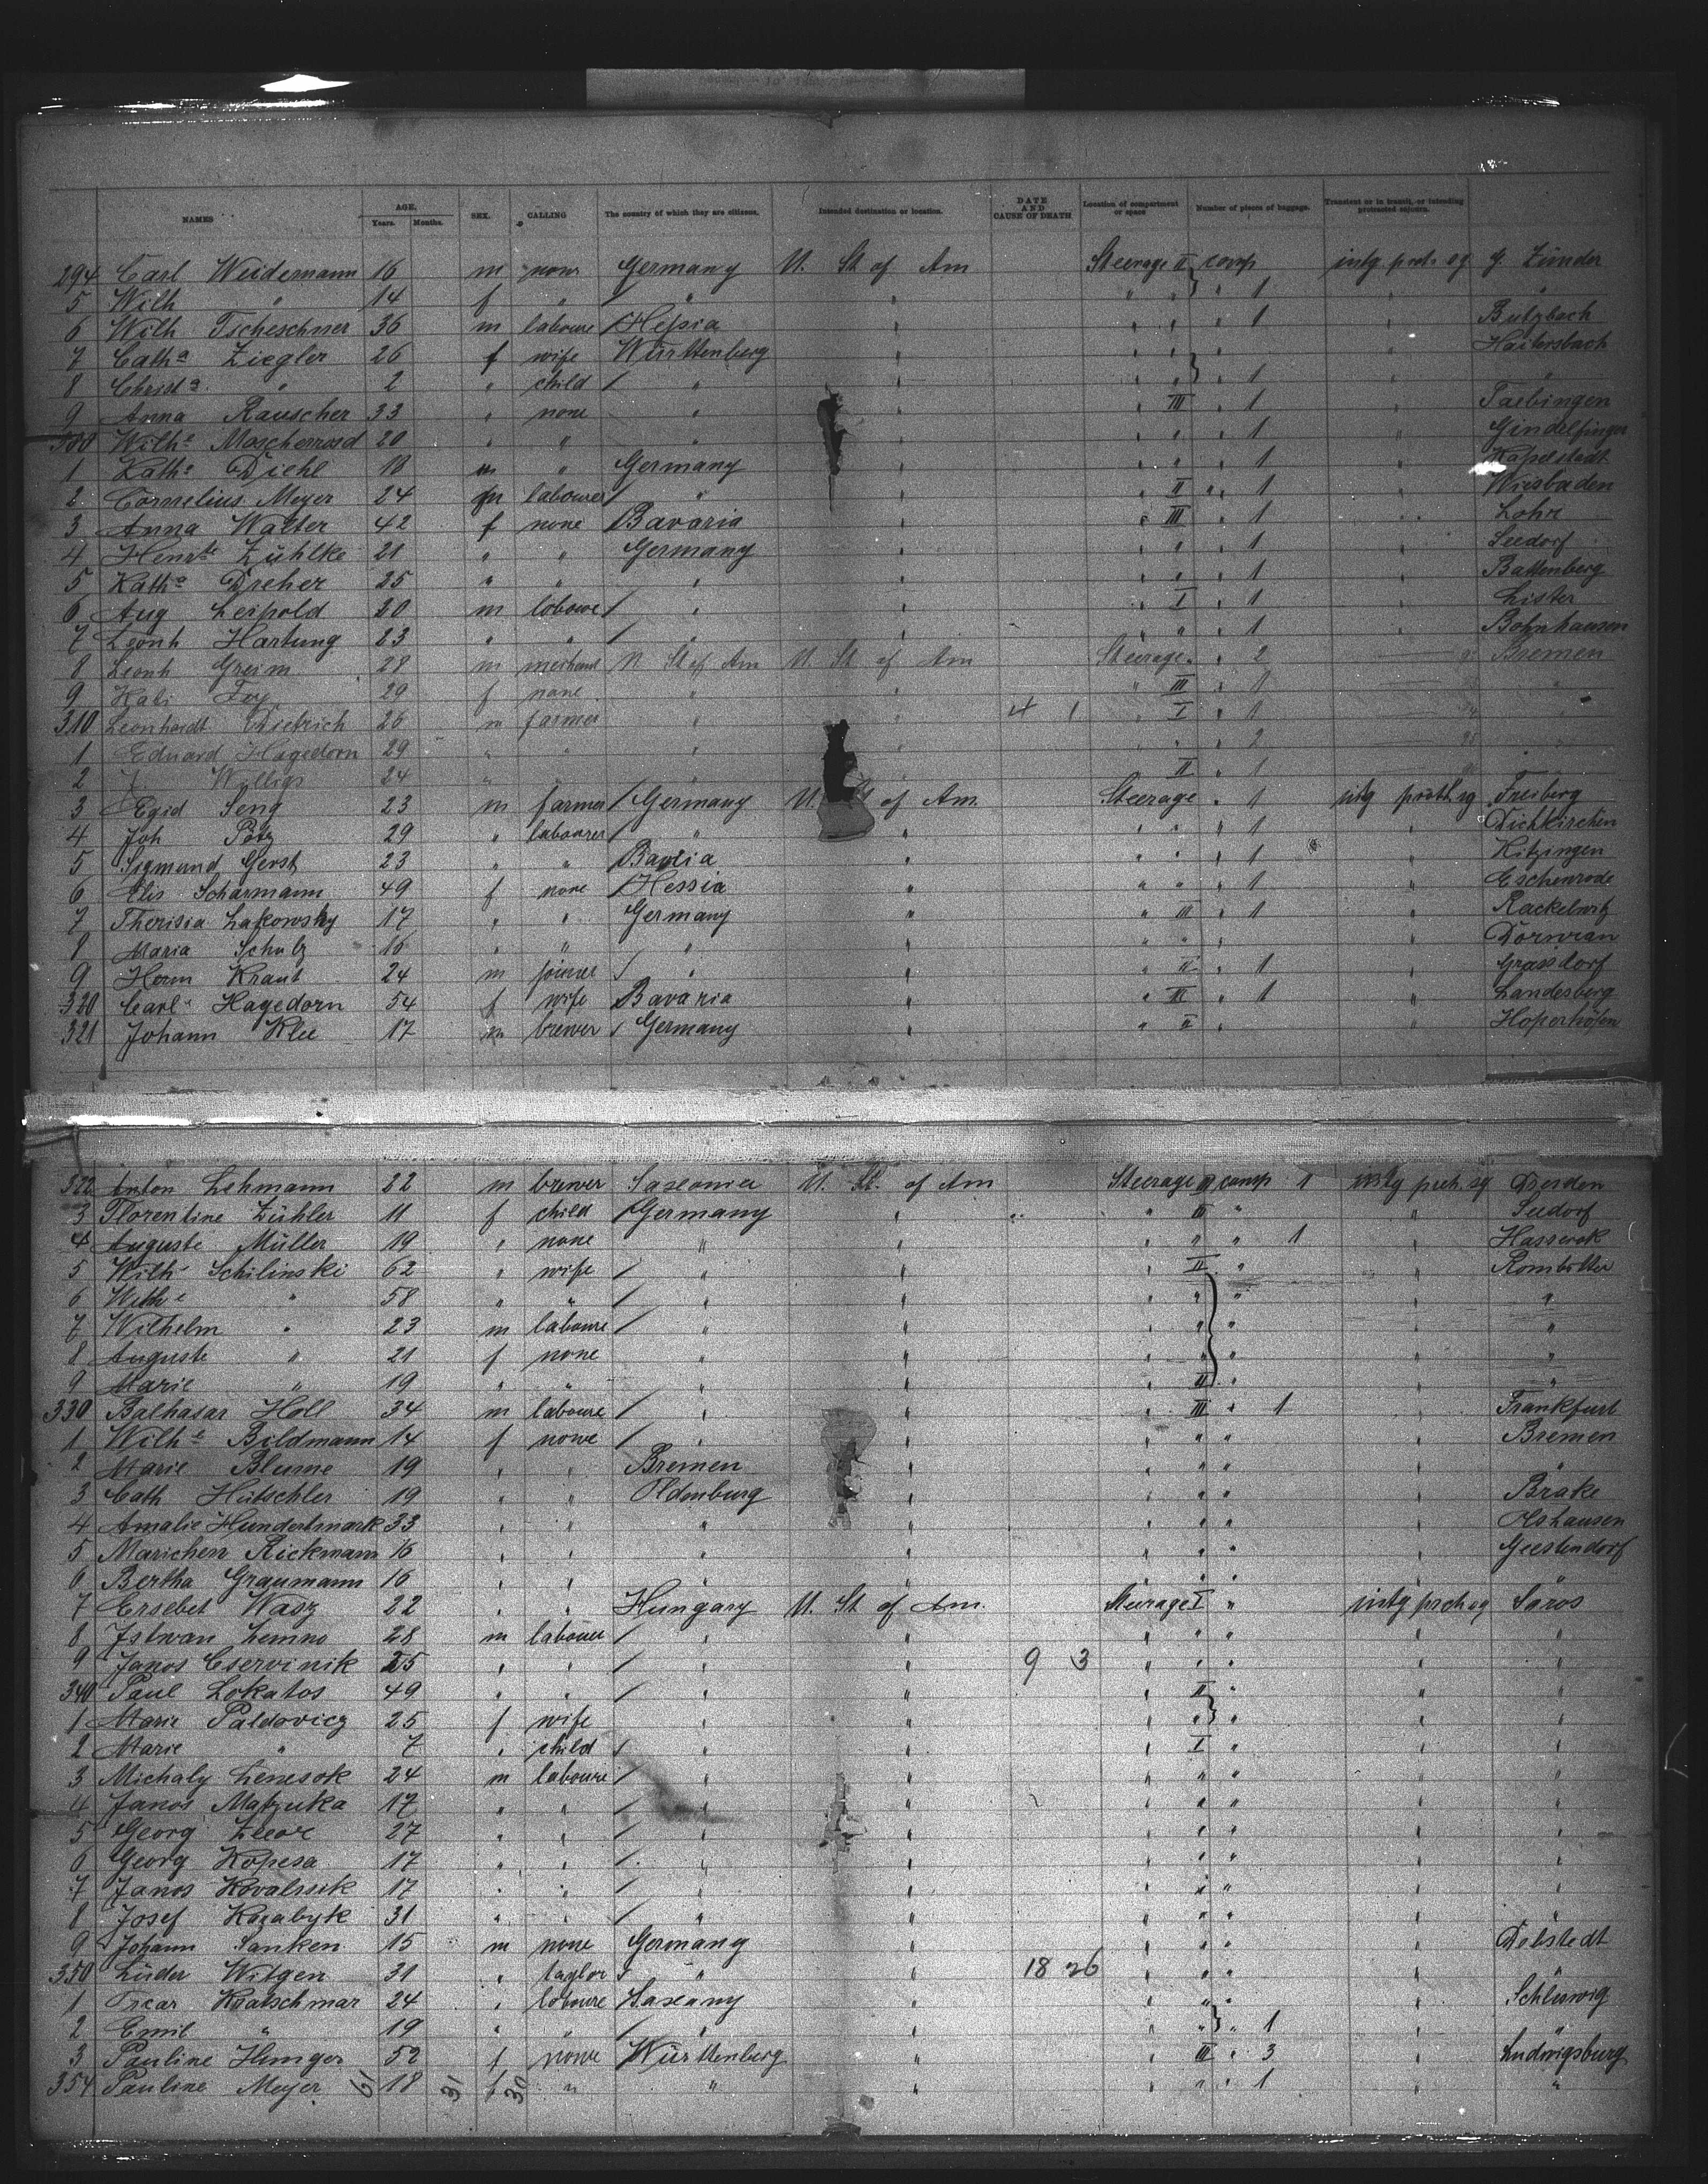 NAMES AGE. Years. Months. SEX. CALLING The country of which they are citizens. Intended destination or location. DATE AND CAUSE OF DEATH Location of compartment or space Number of pieces of baggage. Transient or in transit, or intending protracted sojourn.
294 Carl Weidemann 16 m none Germany U. St of Am Steerage II comp intg prot. sg Zünder
5 Wilh " 14 f " / " " " " " 1 " "
6 Wilh Tscheschner 36 m laboure / Hessia " " " " 1 " Butzbach
7 Cathª Ziegler 26 f wife Württenberg " " " " " Haitersbach
8 Christª " 2 " child / " " " " " 1 " "
9 Anna Rauscher 33 " none " " " III " 1 " Taebingen
300 Wilhe Moscherrosd 20 " " " " " " " 1 " Gindelfingen
1 Kathe Diehl 18 m " Germany " " " " 1 " Kapelstadt
2 Cornelius Meyer 24 m labourer / " " " II " 1 " Wiesbaden
3 Anna Walter 42 f none Bavaria " " III " 1 " Lohr
4 Henrte Zühlke 21 " " Germany " " " " 1 " Seedorf
5 Kathª Dreher 25 " " " " " " " 1 " Battenberg
6 Aug Leipold 20 m laboure / " " " I " 1 " Lister
7 Leonh Hartung 23 " " / " " " " " 1 " Bohnhausen
8 Leonh Greim 28 m U St of Am U St of Am Steerage " " 2 Bremen
9 Kati Foy 29 f none " " " III " 1 "
310 Leonhardt Dietrich 26 m farmer " " 4 1 " I " 1 "
1 Eduard Hagedorn 29 " " " " " " " 2 "
2 Willigs 24 " " " " II " 1
3 Egid Seng 23 m farmer / Germany U. St of Am. Steerage " 1 intg prott. sg Freiberg
4 Joh Pötz 29 " labourer / " " " " " 1 " Dichkirchen
5 Sigmund Gerst 23 " " Bavria " " " " 1 " Kitzingen
6 Elis Scharmann 49 f none / Hessia " " " " 1 " Eschenrode
7 Therisia Lakowsky 17 " " Germany " " III " 1 " Rackelwitz
8 Maria Schulz 16 " " " " " " " "
9 Herm Kraut 24 m joiner / " " " II " 1 Grassdorf
320 Carle Hagedorn 54 f wife Bavaria " " III " 1 " Landesberg
321 Johann Klee 17 m brewer / Germany " " II " " Hoperhöfen
322 Anton Lehmann 22 m brewer Saxonia U. St. of Am Steerage II comp 1 intg prch. sg Dresden
3 Florentine Zühler 11 f child / Germany " " III " " Seedorf
4 Auguste Müller 19 " none " " " " " 1 " Hasserok
5 Wilh Schilinski 62 " wife / " " " II " " Rombitter
6 Withe " 58 " " / " " " " " " "
7 Wilhelm " 23 m laboure / " " " " " " "
8 Auguste " 21 f none " " " " " " "
9 Marie " 19 " " " " " II " " "
330 Balthasar Höll 34 m laboure / " " " III " 1 " Frankfurt
1 Wilhe Bildmann 14 f none / " " " " " " Bremen
2 Marie Blume 19 " " Bremen " " " " " "
3 Cath Hütschler 19 " " Oldenburg " " " " " Brake
4 Amalie Hundertmark 33 " " " " " " " " Olshausen
5 Marichen Rickmann 16 " " " " " " " " Geestendorf
6 Bertha Graumann 16 " " " " " " " " "
7 Ersebet Wasz 22 " " Hungary U. St of Am. Steerage I " intg prch sg Saros
8 Istwan Lemno 28 m labouer / " " " " " " "
9 Janos Cservinik 25 " " / " " 9 3 " " " " "
340 Paul Lokatos 49 " " / " " " II " " "
1 Marie Paldovicz 25 f wife " " " " " " "
2 Marie " 7 " child / " " " I " " "
3 Michaly Lenesok 24 m laboure / " " " " " " "
4 Janos Matzuka 17 " " / " " " " " " "
5 Georg 27 " " / " " " " " " "
6 Georg Kopesa 17 " " / " " " " " " "
7 Janos Kovalssik 17 " " / " " " " " " "
8 Josef Kozabyk 31 " " / " " " " " " "
9 Johann Sanken 15 m none Germany " " " " " Debstedt
350 Lüder Witgen 31 " taylor / " " 18 26 " " " " "
1 Kratschmar 24 " laboure Saxany " " " " " Schleswig
2 Emil " 19 " " / " " " " " 1 "
3 Pauline Hunger 52 f none Württenberg " " III " 3 " Ludwigsburg
354 Pauline Meyer 61 18 31 f 30 " " " " " " 1 " "